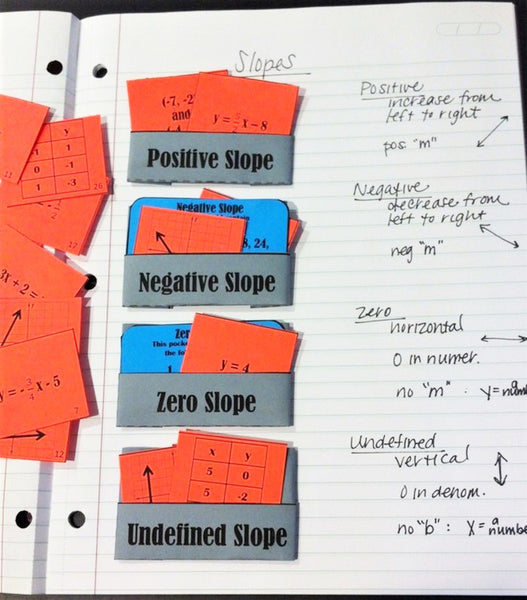 Slopes
(-7, -2
and
y = x - 8
Positive Slope
Positive
increase from
left to right
pos "m"
Negative Slope
8, 24,
Negative Slope
Negative
decrease from
left to right
neg "m"
Zer
This pocke
the fo
1
y = 4
Zero Slope
zero
horizontal
0 in numer.
no "m" . y = a num
x y
5 0
5 -2
Undefined Slope
Undefined
vertical
0 in denom.
no "b" : X = a numbe
y
1 -1
0 -1
1 -3
26
11
17
3x + 2 =
y = -3/4 x - 5
7
12